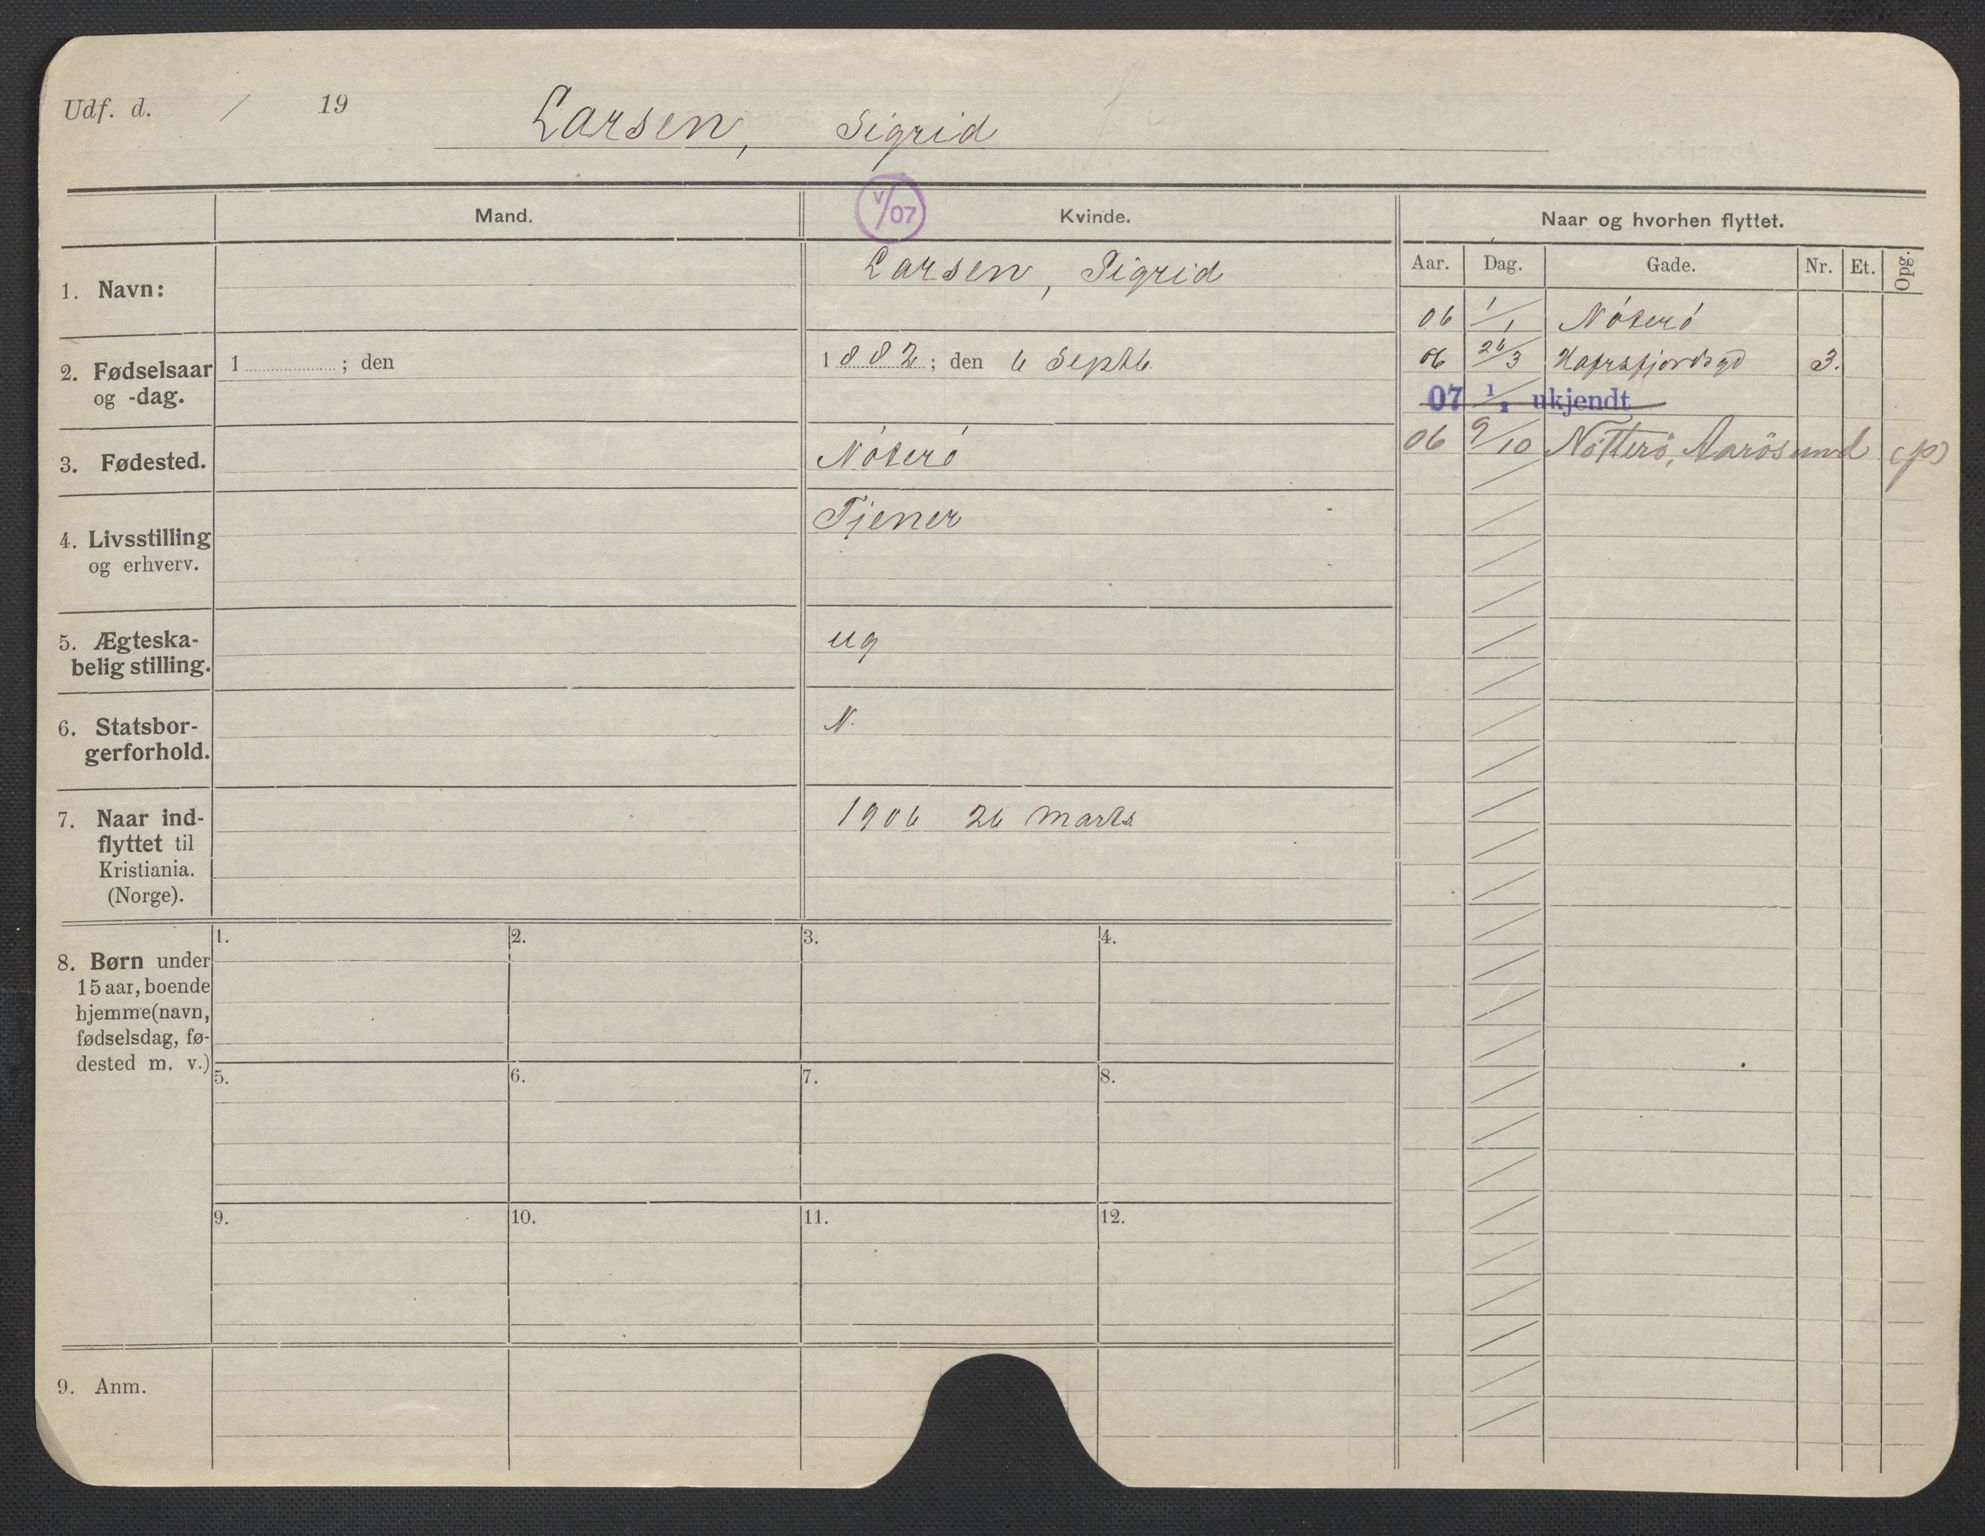 Udf. d. / 19 Larsen, Sigrid
Mand. V/07 Kvinde. Naar og hvorhen flyttet.
Aar. Dag. Gade. Nr. Et. Opg.
1. Navn: Larsen, Sigrid
06 1/1 Nóteró
2. Fødselsaar og -dag. 1 ; den 1882; den 6 Septb
06 26/3 Hafrsfjordsgd 3.
07 1/2 ukjendt
06 9/10 Nøtterö, Aarösund (p)
3. Fødested. Nóteró
4. Livsstilling Tjener
og erhverv.
5. Ægteska-
belig stilling. ug
6. Statsbor- N.
gerforhold.
7. Naar ind- 1906 26 Marts
flyttet til
Kristiania.
(Norge).
1. 2. 3. 4.
8. Børn under
15 aar, boende
hjemme(navn,
fødselsdag, fø-
dested m. v.)
5. 6. 7. 8.
9. 10. 11. 12.
9. Anm.